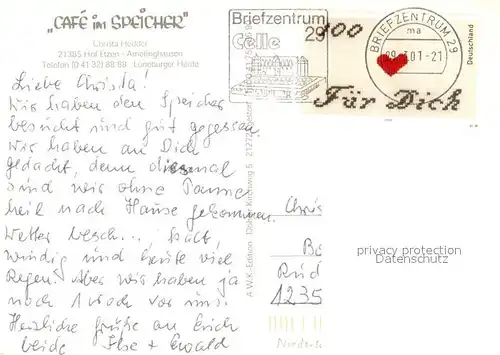 „CAFÉ im SPEICHER“
Christa Hedder
21385 Hof Etzen - Amelinghausen
Telefon (0 41 32) 88 88 Lüneburger Heide
Liebe Christa!
Wir haben den Speicher
besucht und gut gegessen.
Wir haben an Dich
gedacht, denn diesmal
sind wir ohne Panne
heil nach Hause gekommen.
Wetter besch... kalt,
windig und heute viel
Regen. Aber wir haben ja
noch 1 Woch vor uns.
Herzliche Grüße an Erich
beide Ilse + Ewald
A.W.K.-Edition
5 21272
Briefzentrum
29
Celle
100
Für Dich
Deutschland
BRIEFZENTRUM 29
ma
01-21
Chris
Rud
1235
privacy protection
Datenschutz